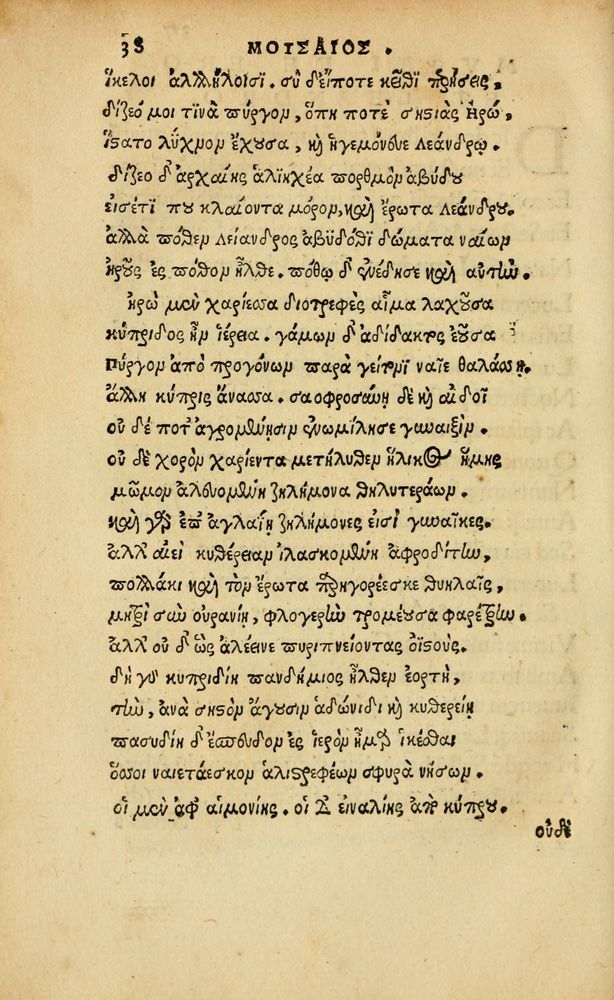 38 ΜΟΥΣΑΙΟΣ .
ἴκελοι ἀλλήλοισι . σὺ δ' εἴποτε κεῖθι περήσεις,
δίζεό μοι τινὰ πύργον, ὅπη ποτὲ σηστιὰς Ἡρώ,
ἵστατο λύχνον ἔχουσα, καὶ ἡγεμόνευε Λεάνδρῳ.
δίζεο δ' ἀρχαίης ἁλιηχέα πορθμὸν ἀβύδου
εἰσέτι που κλαίοντα μόρον, καὶ ἔρωτα Λεάνδρου.
ἀλλὰ πόθεν Λείανδρος ἀβυδόθι δώματα ναίων
ἡροῦς ἐς πόθον ἦλθε . πόθῳ δ' ἐνέδησε καὶ αὐτὴν.
ἡρὼ μὲν χαρίεσσα διοτρεφὲς αἷμα λαχοῦσα
κύπριδος ἦν ἱέρεια . γάμων δ' ἀδίδακτος ἐοῦσα
πύργον ἀπὸ προγόνων παρὰ γείτονι ναῖε θαλάσσῃ.
ἄλλη κύπρις ἄνασσα . σαοφροσύνῃ δὲ καὶ αἰδοῖ
οὐδέ ποτ' ἀγρομένῃσιν ἐνωμίλησε γυναιξίν .
οὐδὲ χορὸν χαρίεντα μετήλυθεν ἥλικος ἥβης
μῶμον ἀλευομένη ζηλήμονα θηλυτεράων .
καὶ γὰρ ἐπ' ἀγλαΐῃ ζηλήμονες εἰσὶ γυναῖκες.
ἀλλ' αἰεὶ κυθέρειαν ἱλασκομένη ἀφροδίτην,
πολλάκι καὶ τὸν ἔρωτα παρηγορέεσκε θυηλαῖς,
μητρὶ σὺν οὐρανίῃ, φλογερὴν τρομέουσα φαρέτρην.
ἀλλ' οὐδ' ὣς ἀλέεινε πυριπνείοντας ὀϊστούς.
δὴ γὰρ κυπριδίη πανδήμιος ἦλθεν ἑορτὴ,
τὴν, ἀνὰ σηστὸν ἄγουσιν ἀδώνιδι καὶ κυθερείῃ
πασυδίῃ δ' ἔσπευδον ἐς ἱερὸν ἦμαρ ἱκέσθαι
ὅσσοι ναιετάεσκον ἁλιστρεφέων σφυρὰ νήσων .
οἱ μὲν ἀφ' αἱμονίης . οἱ δ' εἰναλίης ἀπὸ κύπρου.
οὐδὲ